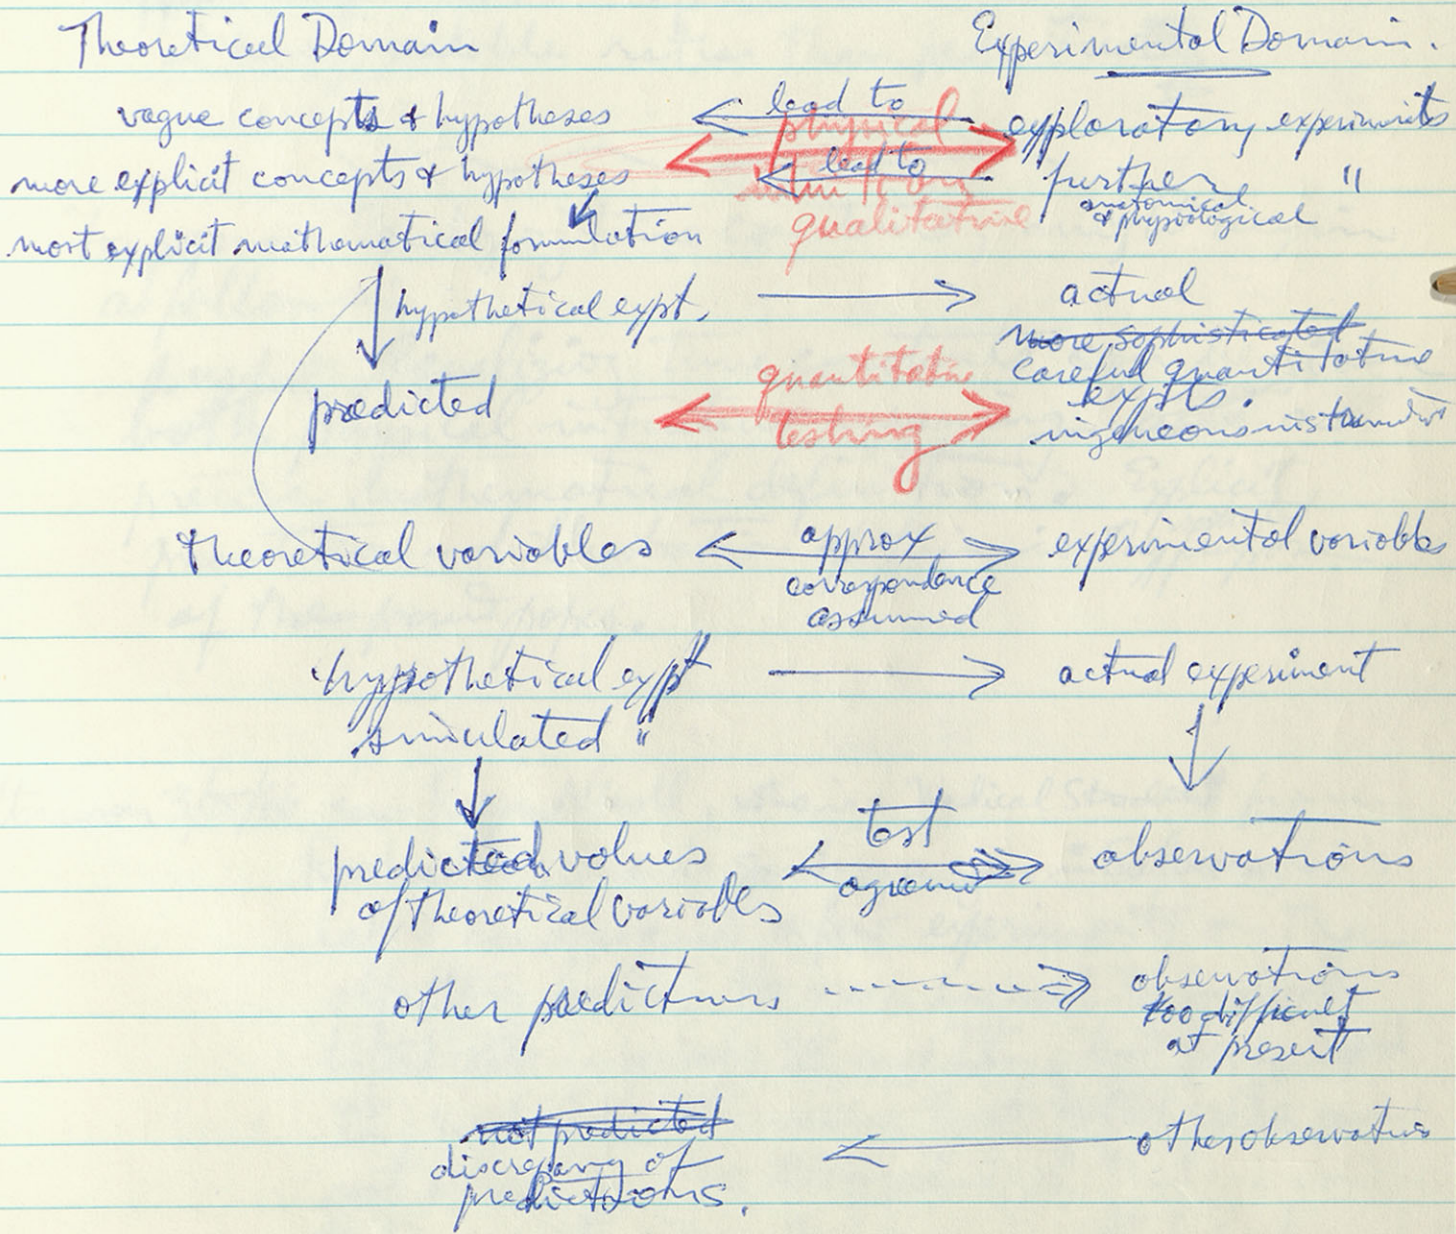 Theoretical Domain
Experimental Domain.
vague concepts & hypotheses
lead to
exploratory experiments
physical
more explicit concepts & hypotheses
lead to
further "
intuition
anatomical
& physiological
qualitative
most explicit mathematical formulation
hypothetical expt.
actual
more sophisticated
careful quantitative
expts.
quantitative
testing
predicted
theoretical variables
approx
correspondence
assumed
experimental variables
hypothetical expt
simulated "
actual experiment
predicted values
of theoretical variables
test
agreemt
observations
other predictions
observations
too difficult
at present
not predicted
discrepancy of
predictions.
other observations